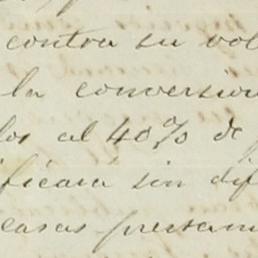 contra su vol
la conversion
los al 40% de
ificará sin dif
casas presam